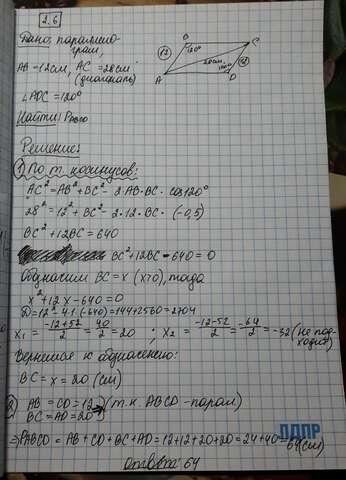 2.6
Дано: параллело-
грам
AB = 12см, AC = 28см
(диагональ)
∠ADC = 120°
Найти: Pавсо
B
C
A
D
12
120°
28см
120°
12
Решение:
① По т. косинусов:
AC² = AB² + BC² - 2·AB·BC· cos120°
28² = 12² + BC² - 2·12·BC· (-0,5)
BC² + 12BC = 640
BC² + 12BC - 640 = 0
Обозначим BC = x (x>0), тогда
x² + 12x - 640 = 0
D = 12² - 4·1·(-640) = 144 + 2560 = 2704
x₁ = (-12+52)/2 = 40/2 = 20 ; x₂ = (-12-52)/2 = -64/2 = -32 (не под-
ходит)
Вернемся к обозначению:
BC = x = 20 (см)
② AB = CD = 12 (т.к ABCD - парал)
BC = AD = 20
⇒ PABCD = AB + CD + BC + AD = 12+12+20+20 = 24+40 = 64(см)
Ответ: 64
ПДПР